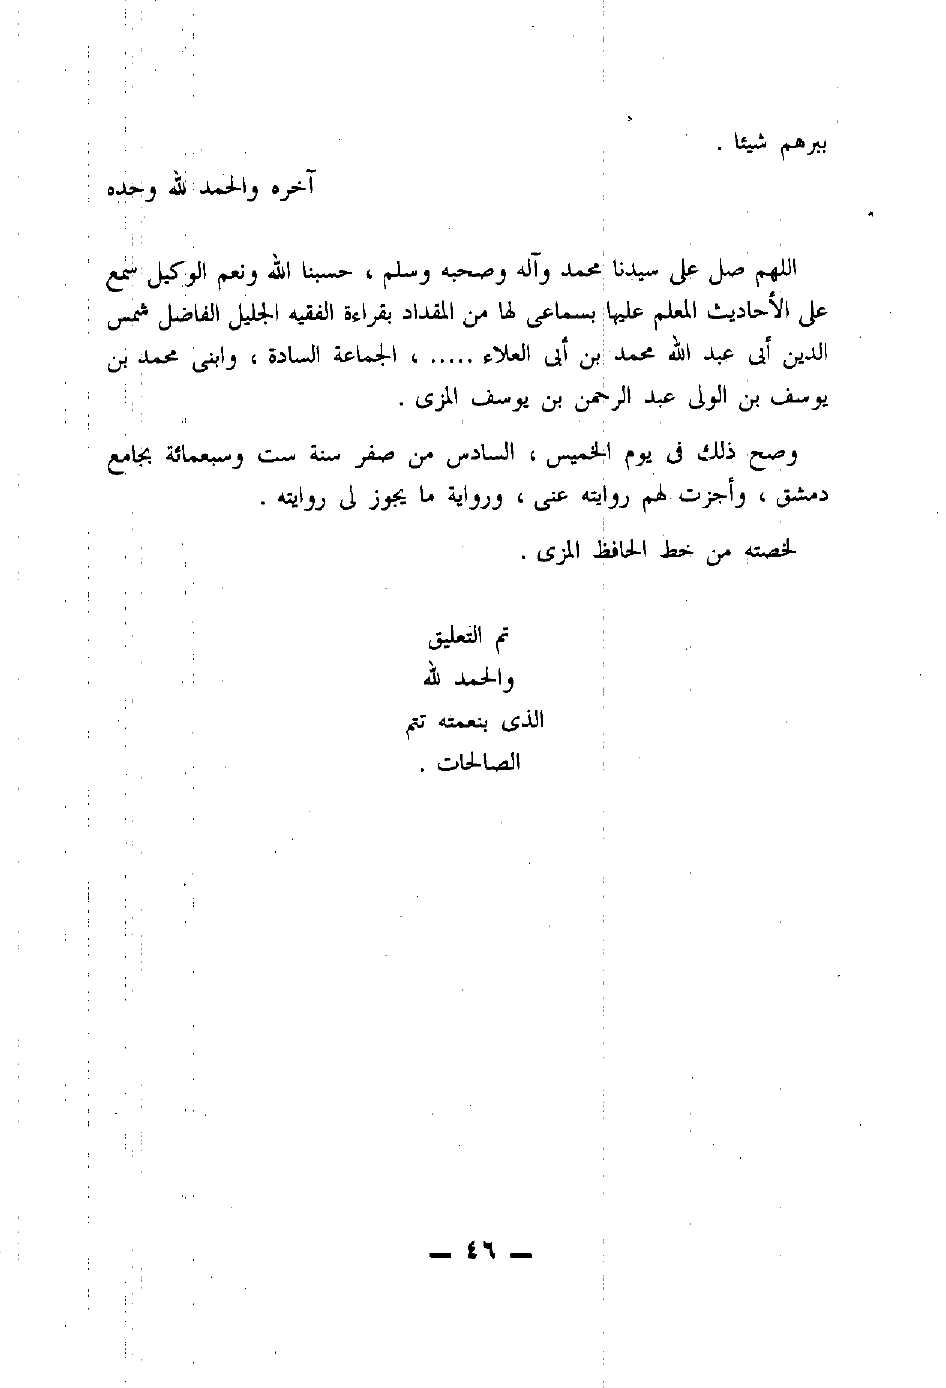 ببرهم شيئا .
آخره والحمد لله وحده
اللهم صل على سيدنا محمد وآله وصحبه وسلم ، حسبنا الله ونعم الوكيل سمع
على الأحاديث المعلم عليها بسماعى لها من المقداد بقراءة الفقيه الجليل الفاضل شمس
الدين أبى عبد الله محمد بن أبى العلاء ..... ، الجماعة السادة ، وابنى محمد بن
يوسف بن الولى عبد الرحمن بن يوسف المزى .
وصح ذلك فى يوم الخميس ، السادس من صفر سنة ست وسبعمائة بجامع
دمشق ، وأجزت لهم روايته عنى ، ورواية ما يجوز لى روايته .
لخصته من خط الحافظ المزى .
تم التعليق
والحمد لله
الذى بنعمته تتم
الصالحات .
— ٤٦ —